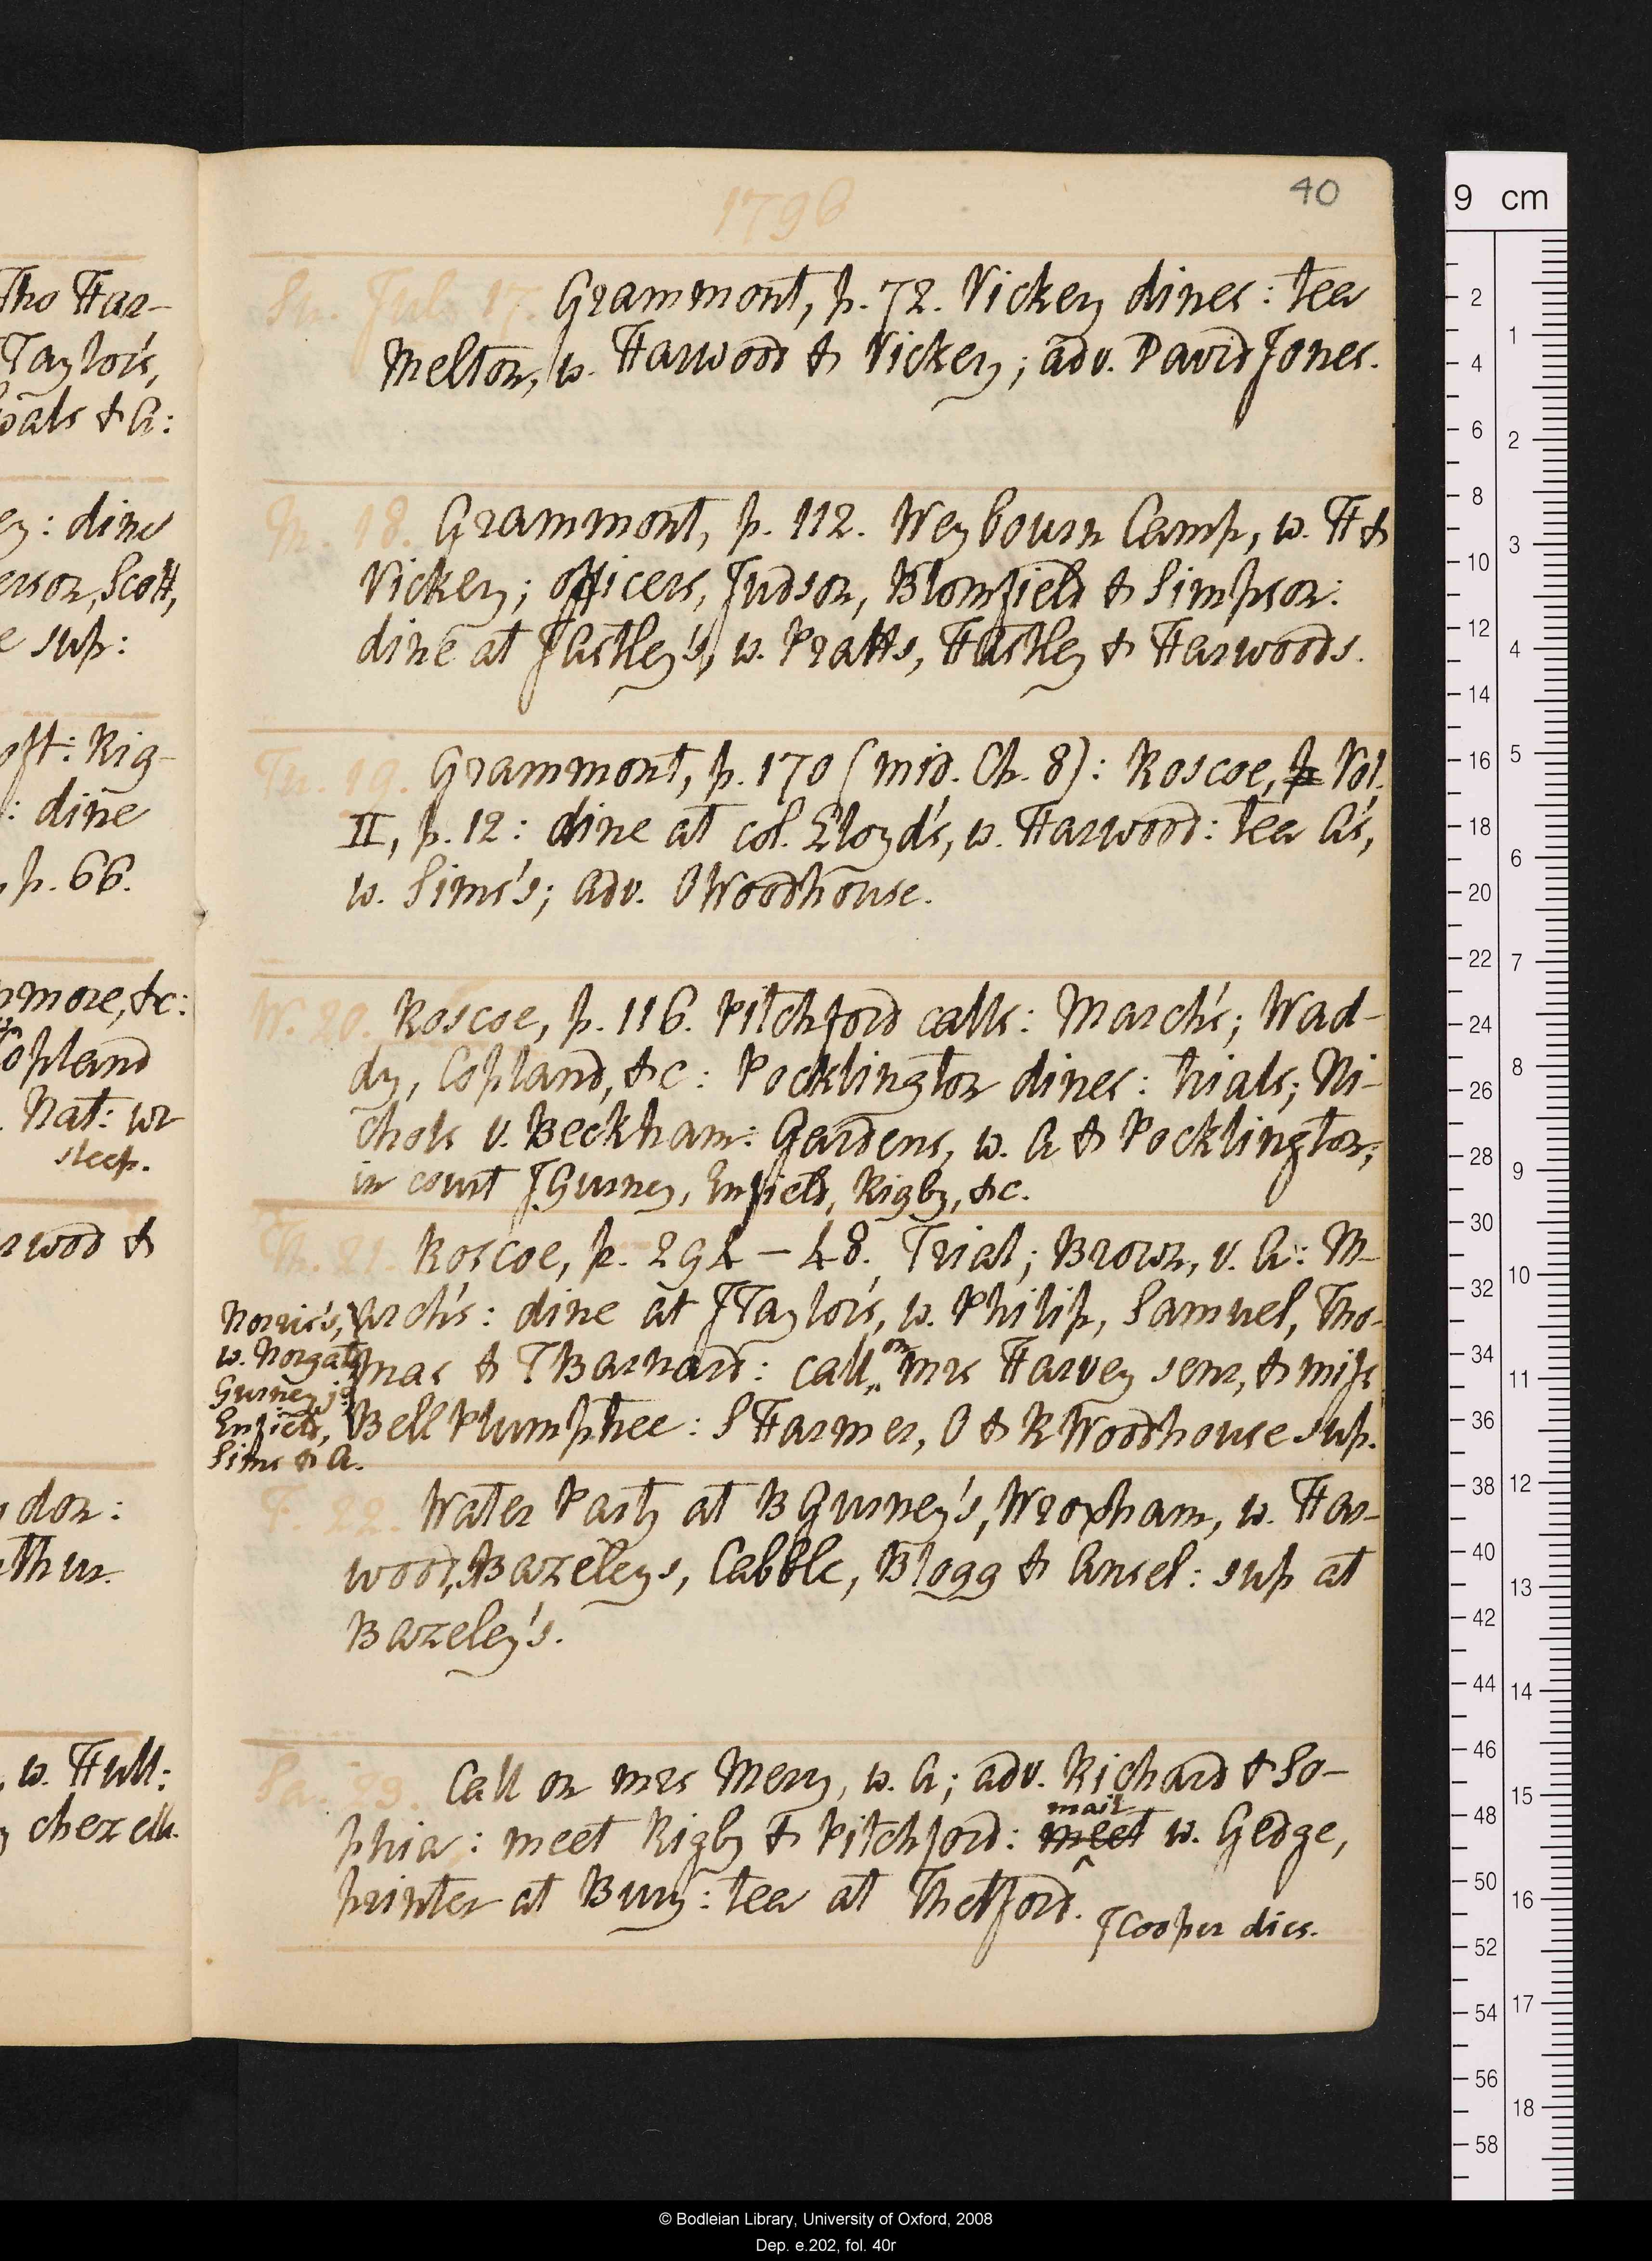 40
1796
Su. Jul. 17. Grammont, p. 72. Vickery dines: tea
Melton, w. Harwood & Vickery; adv. David Jones.
M. 18. Grammont, p. 112. Weybourn Camp, w. H &
Vickery; officers, Judson, Blomfield & Simpson:
dine at JAstley's, w. Pratts, HAstley & Harwoods.
Tu. 19. Grammont, p. 170 (mid. Ch. 8): Roscoe, p Vol.
II, p. 12: dine at col. Lloyd's, w. Harwood: tea A's,
w. Sims's; adv. OWoodhouse.
W. 20. Roscoe, p. 116. Pitchford calls: March's; Wad-
dy, Copland, &c: Pocklington dines: trials; Ni-
chols v. Beckham: Gardens, w. A & Pocklington;
in court JGurney, Enfield, Rigby, &c.
Th. 21. Roscoe, p. 294–48. Trial; Brown, v. A: M-
arch's: dine at JTaylor's, w. Philip, Samuel, Tho-
mas & TBarnard: call on mrs Harvey senr, & miss
Bell Plumptree: SHarmer, O & RWoodhouse sup.
Norris's,
w. Norgate
Gurney jr
Enfield,
Sims & A.
F. 22. Water Party at BGurney's, Wroxham, w. Har-
wood, Bazeleys, Cabble, Blogg & Ansel: sup at
Bazeley's.
Sa. 23. Call on mrs Merry, w. A; adv. Richard & So-
phia: meet Rigby & Pitchford: meet mail w. Gedge,
printer at Bury: tea at Thetford.
JCooper dies.
Tho Har-
Taylor's,
& A:
: dine
erson, Scott,
sup:
: Rig-
: dine
p. 66.
more, &c:
Copland
Nat: wr
sleep.
rwood &
don:
thur.
, w. Hull:
chez elle.
9 cm
2
4
6
8
10
12
14
16
18
20
22
24
26
28
30
32
34
36
38
40
42
44
46
48
50
52
54
56
58
1
2
3
4
5
6
7
8
9
10
11
12
13
14
15
16
17
18
© Bodleian Library, University of Oxford, 2008
Dep. e.202, fol. 40r